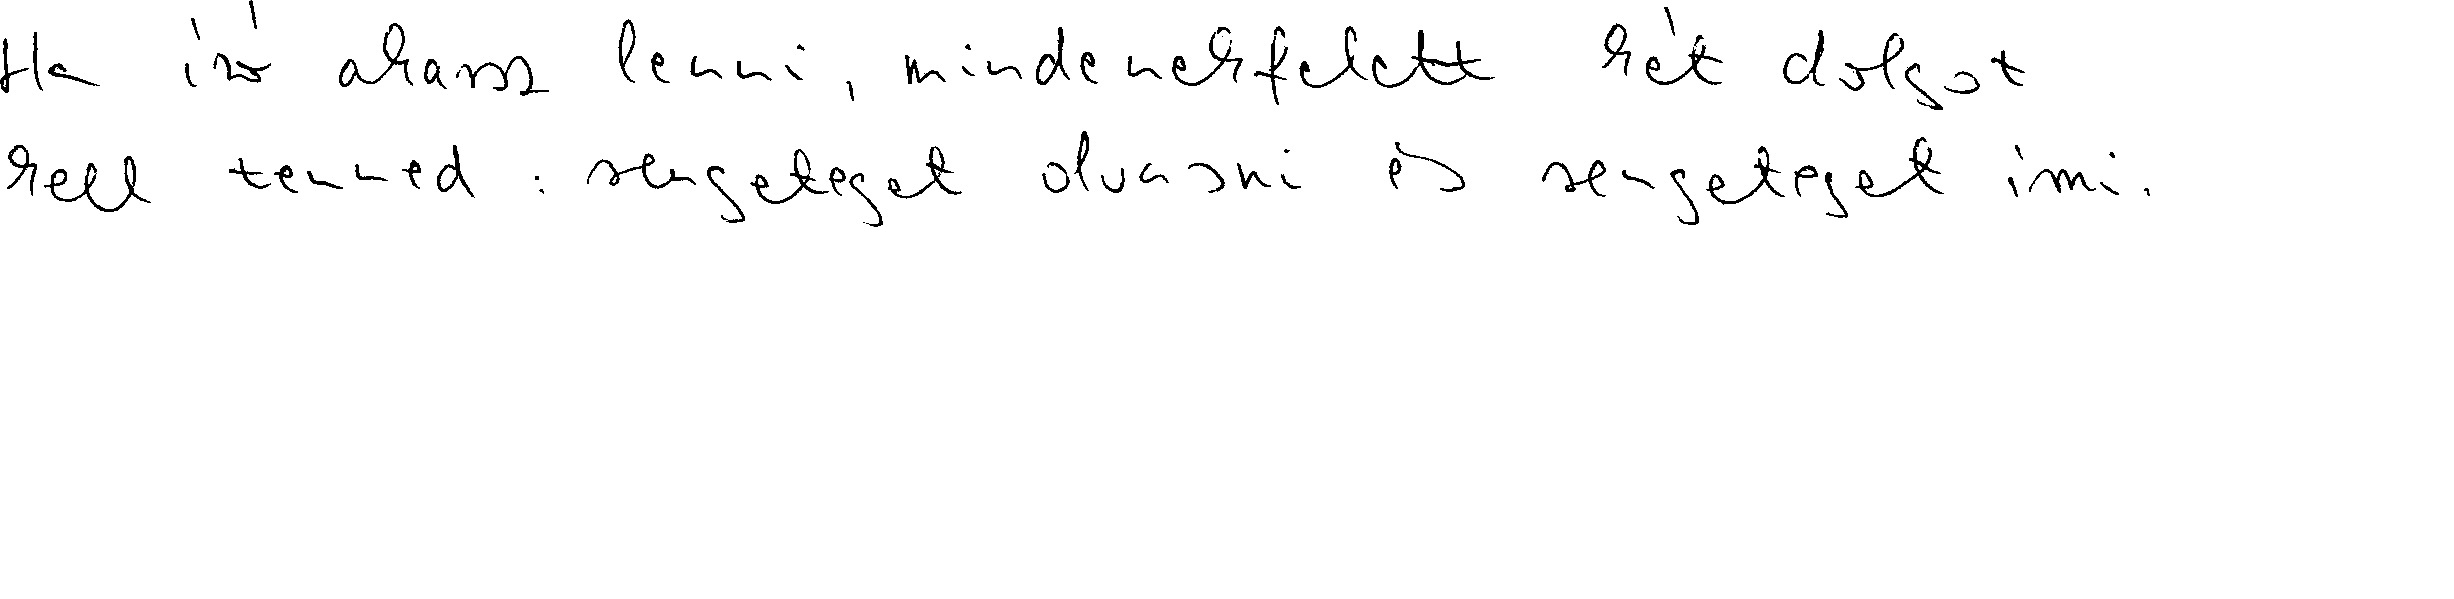 Ha író akarsz lenni, mindenekfelett két dolgot
kell tenned: rengeteget olvasni és rengeteget írni.